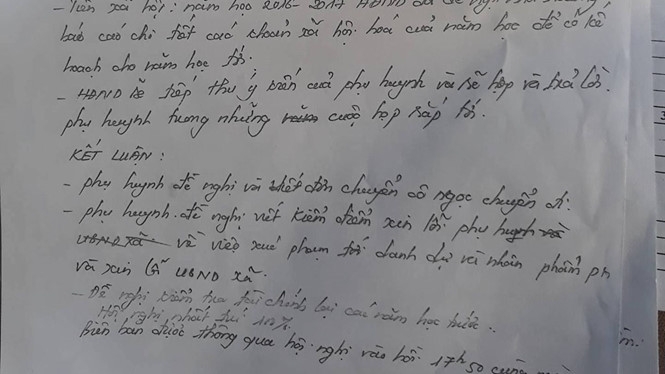 - Tiền xã hội: năm học 2016-2017 HĐND đã đề nghị nhà trường
báo cáo chi tiết các khoản xã hội hoá của năm học để có kế
hoạch cho năm học tới.
- HĐND sẽ tiếp thu ý kiến của phụ huynh và sẽ họp và trả lời
phụ huynh trong những cuộc họp sắp tới.
KẾT LUẬN:
- phụ huynh đề nghị và viết đơn chuyển cô ngọc chuyển đi.
- phụ huynh đề nghị viết kiểm điểm xin lỗi phụ huynh và
UBND xã về việc xúc phạm tới danh dự và nhân phẩm ph
và xin lỗi UBND xã.
- Đề nghị kiểm tra tài chính lại các năm học trước.
Hội nghị nhất trí 100%
Biên bản được thông qua hội nghị vào hồi 17h50 cùng